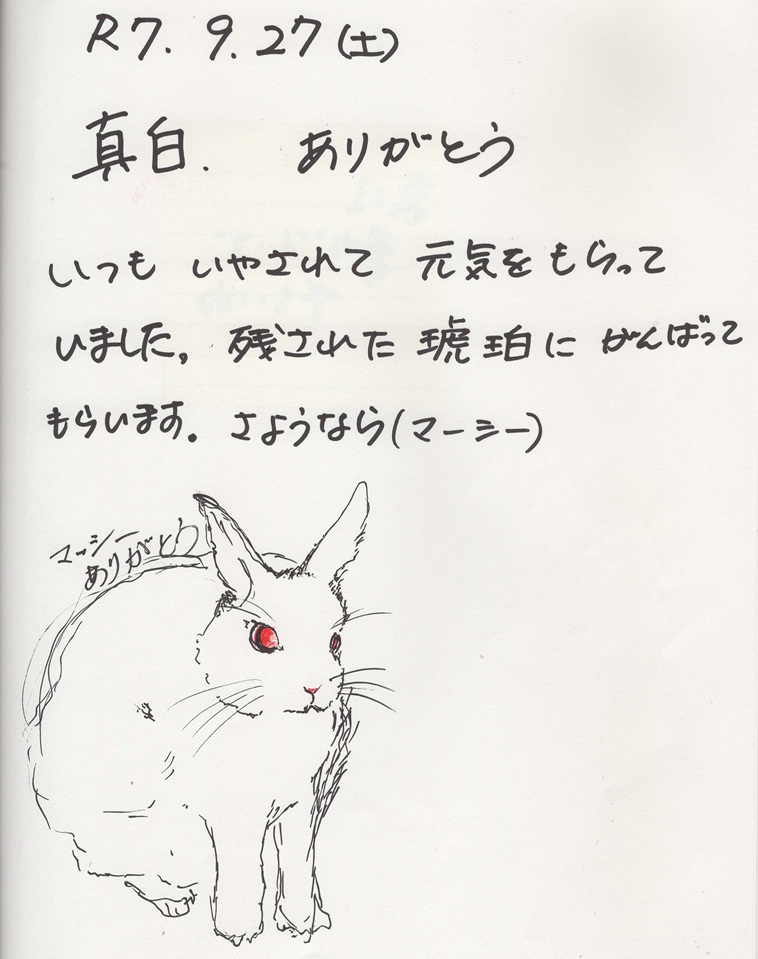 R7. 9. 27 (土)
真白. ありがとう
いつも いやされて 元気を もらって
いました。残された 琥珀に がんばって
もらいます。さようなら(マーシー)
マッシー
ありがとう